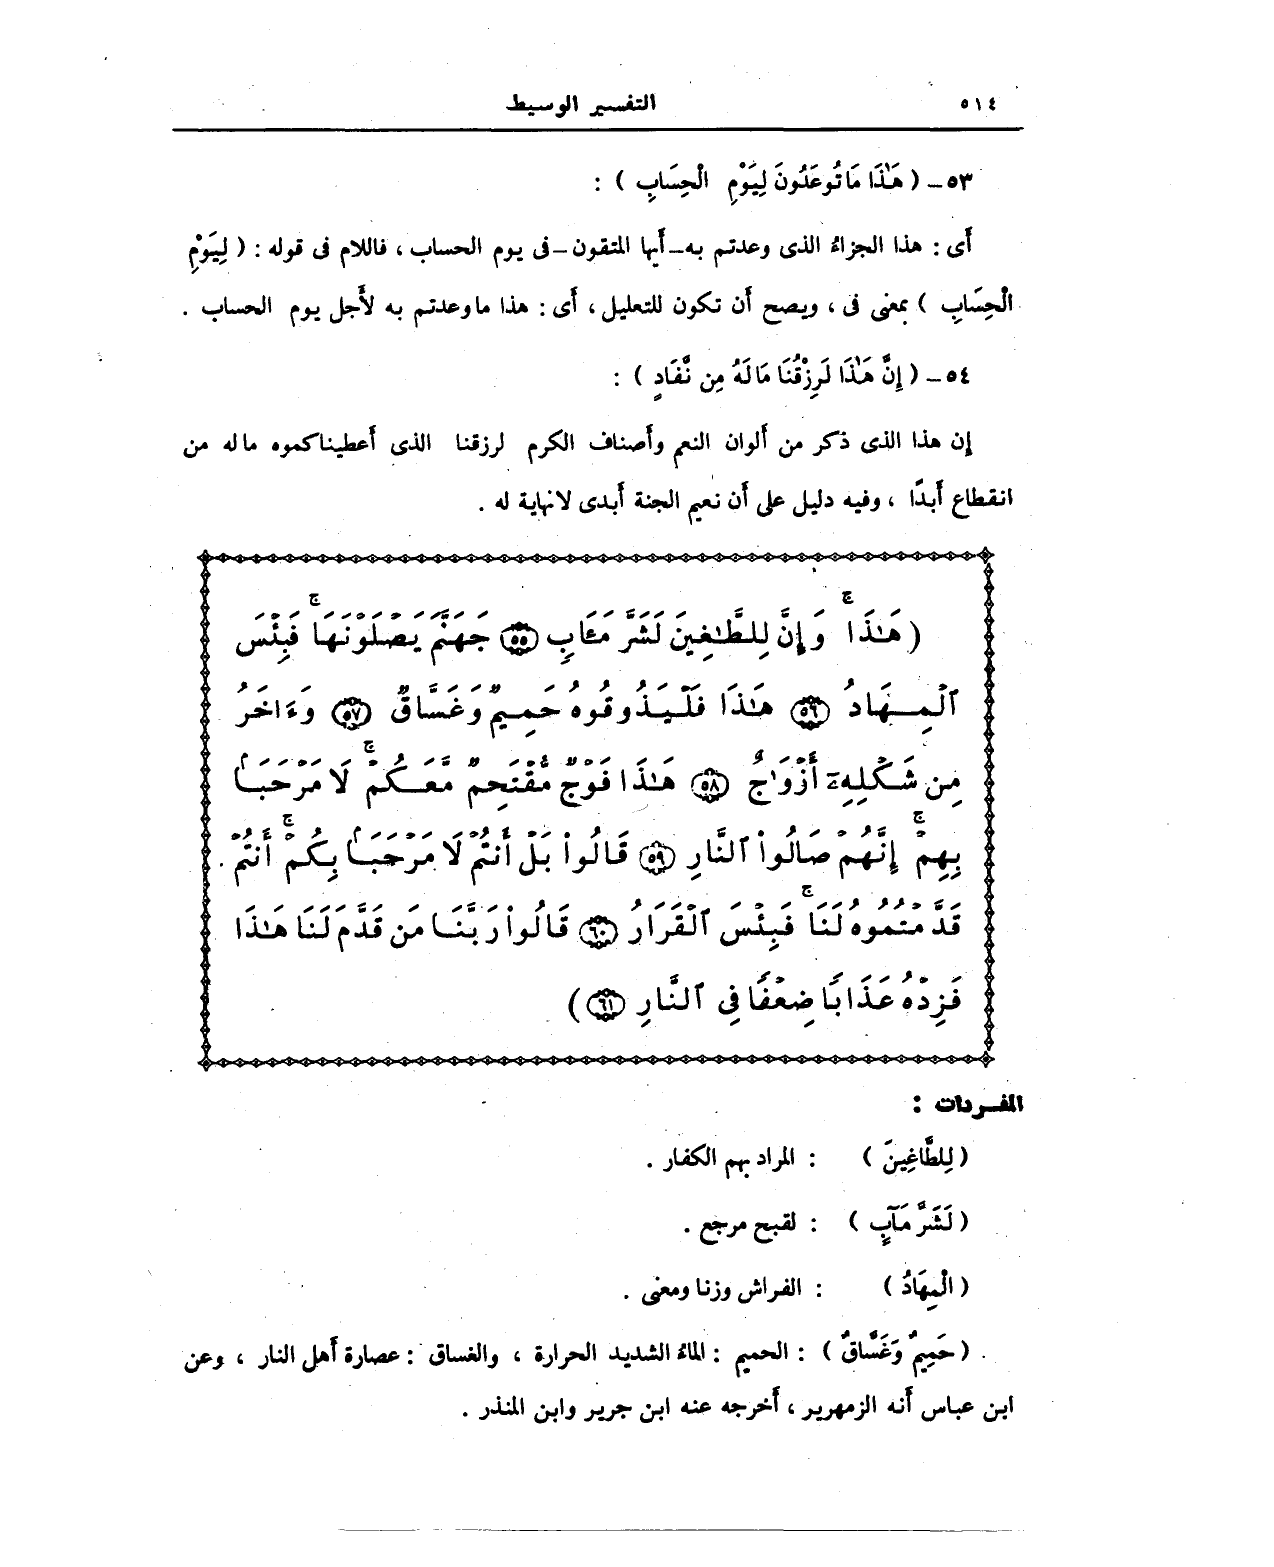 ٥١٤
التفسير الوسيط
٥٣ـ ( هَـٰذَا مَا تُوعَدُونَ لِيَوْمِ الْحِسَابِ ) :
أَى : هذا الجزاءُ الذى وعدتم به ــ أيها المتقون ــ فى يوم الحساب ، فاللام فى قوله : ( لِيَوْمِ
الْحِسَابِ ) بمعنى فى ، ويصح أن تكون للتعليل ، أى : هذا ما وعدتم به لأَجل يوم الحساب .
٥٤ـ ( إِنَّ هَـٰذَا لَرِزْقُنَا مَا لَهُ مِن نَّفَادٍ ) :
إن هذا الذى ذكر من ألوان النعم وأصناف الكرم لرزقنا الذى أعطيناكموه ما له من
انقطاع أبدًا ، وفيه دليل على أن نعيم الجنة أبدى لا نهاية له .
(هَـٰذَا ۚ وَإِنَّ لِلطَّـٰغِينَ لَشَرَّ مَـَٔابٍ ٥٥ جَهَنَّمَ يَصْلَوْنَهَا ۚ فَبِئْسَ
ٱلْمِهَادُ ٥٦ هَـٰذَا فَلْيَذُوقُوهُ حَمِيمٌ وَغَسَّاقٌ ٥٧ وَءَاخَرُ
مِن شَكْلِهِۦٓ أَزْوَٰجٌ ٥٨ هَـٰذَا فَوْجٌ مُّقْتَحِمٌ مَّعَكُمْ ۚ لَا مَرْحَبًۢا
بِهِمْ ۚ إِنَّهُمْ صَالُوا۟ ٱلنَّارِ ٥٩ قَالُوا۟ بَلْ أَنتُمْ لَا مَرْحَبًۢا بِكُمْ ۚ أَنتُمْ
قَدَّمْتُمُوهُ لَنَا ۚ فَبِئْسَ ٱلْقَرَارُ ٦٠ قَالُوا۟ رَبَّنَا مَن قَدَّمَ لَنَا هَـٰذَا
فَزِدْهُ عَذَابًا ضِعْفًا فِى ٱلنَّارِ ٦١)
المفـردات :
( لِلطَّاغِينَ ) : المراد بهم الكفار .
( لَشَرَّ مَآبٍ ) : لقبح مرجع .
( الْمِهَادُ ) : الفراش وزنا ومعنى .
( حَمِيمٌ وَغَسَّاقٌ ) : الحميم : الماءُ الشديد الحرارة ، والغساق : عصارة أهل النار ، وعن
ابن عباس أنه الزمهرير ، أخرجه عنه ابن جرير وابن المنذر .